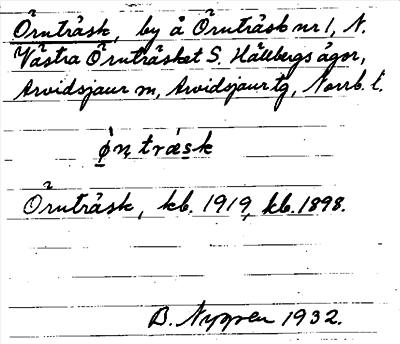 Örnträsk, by å Örnträsk nr 1, N.
Västra Örnträsket S. Hällbergs ägor,
Arvidsjaur sn, Arvidsjaur tg, Norrb. l.
ǿn̥træ̀sk
Örnträsk, kb. 1919, kb. 1898.
B. Nygren 1932.